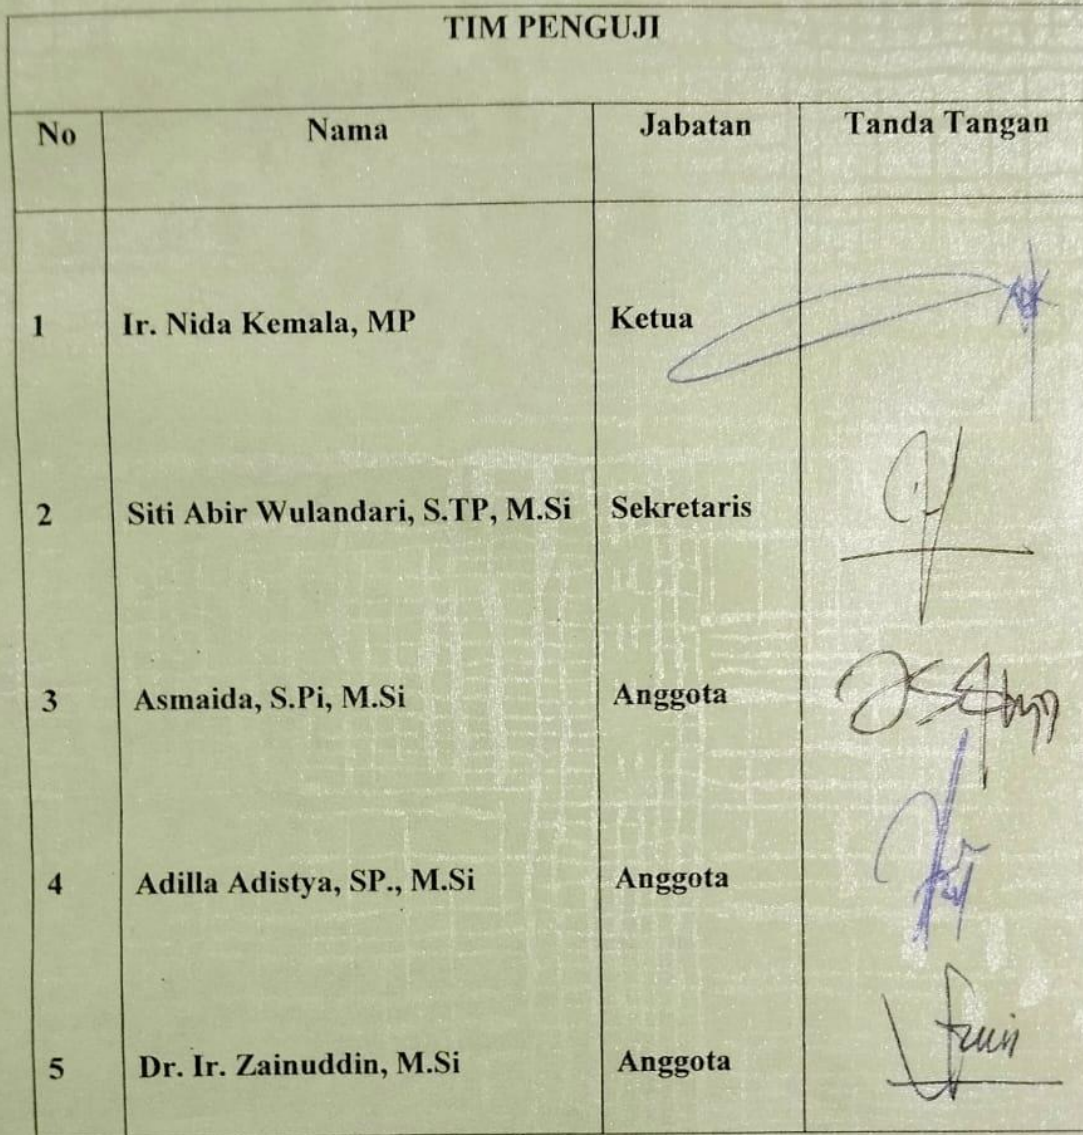 TIM PENGUJI
No Nama Jabatan Tanda Tangan
1 Ir. Nida Kemala, MP Ketua
2 Siti Abir Wulandari, S.TP, M.Si Sekretaris
3 Asmaida, S.Pi, M.Si Anggota
4 Adilla Adistya, SP., M.Si Anggota
5 Dr. Ir. Zainuddin, M.Si Anggota